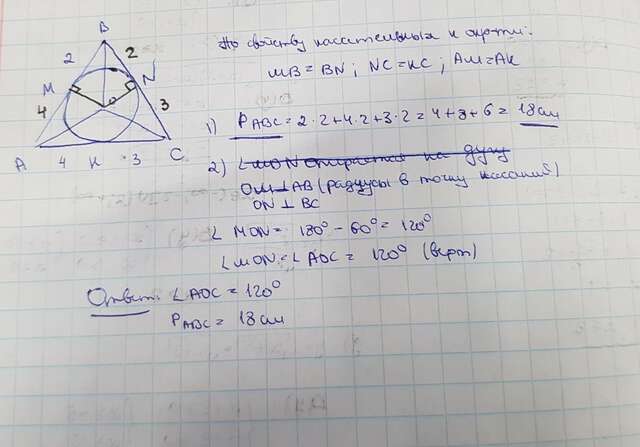 B
2 2
M N
4 O 3
A 4 K 3 C
По свойству касательных к окр-ти:
MB = BN ; NC = KC ; AM = AK
1) P ABC = 2·2+4·2+3·2 = 4+8+6 = 18 см
2) ∠MON опирается на дугу
OM ⊥ AB (радиусы в точку касаний)
ON ⊥ BC
∠ MON = 180° − 60° = 120°
∠ MON = ∠ AOC = 120° (верт)
Ответ: ∠ AOC = 120°
P ABC = 18 см